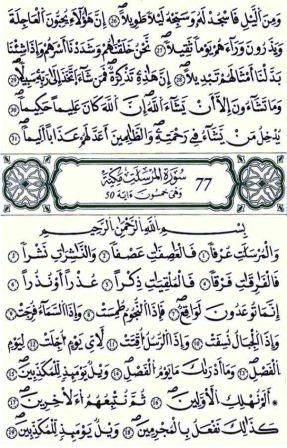 وَمِنَ ٱلَّيْلِ فَٱسْجُدْ لَهُۥ وَسَبِّحْهُ لَيْلًا طَوِيلًا ٢٦ إِنَّ هَٰٓؤُلَآءِ يُحِبُّونَ ٱلْعَاجِلَةَ
وَيَذَرُونَ وَرَآءَهُمْ يَوْمًا ثَقِيلًا ٢٧ نَّحْنُ خَلَقْنَٰهُمْ وَشَدَدْنَآ أَسْرَهُمْ وَإِذَا شِئْنَا
بَدَّلْنَآ أَمْثَٰلَهُمْ تَبْدِيلًا ٢٨ إِنَّ هَٰذِهِۦ تَذْكِرَةٌ فَمَن شَآءَ ٱتَّخَذَ إِلَىٰ رَبِّهِۦ سَبِيلًا ٢٩
وَمَا تَشَآءُونَ إِلَّآ أَن يَشَآءَ ٱللَّهُ إِنَّ ٱللَّهَ كَانَ عَلِيمًا حَكِيمًا ٣٠
يُدْخِلُ مَن يَشَآءُ فِى رَحْمَتِهِۦ وَٱلظَّٰلِمِينَ أَعَدَّ لَهُمْ عَذَابًا أَلِيمًا ٣١
سُورَةُ ٱلْمُرْسَلَٰتِ مَكِّيَّةٌ 77
وَهِىَ خَمْسُونَ ءَايَة 50
بِسْمِ ٱللَّهِ ٱلرَّحْمَٰنِ ٱلرَّحِيمِ
وَٱلْمُرْسَلَٰتِ عُرْفًا ١ فَٱلْعَٰصِفَٰتِ عَصْفًا ٢ وَٱلنَّٰشِرَٰتِ نَشْرًا ٣
فَٱلْفَٰرِقَٰتِ فَرْقًا ٤ فَٱلْمُلْقِيَٰتِ ذِكْرًا ٥ عُذْرًا أَوْ نُذْرًا ٦
إِنَّمَا تُوعَدُونَ لَوَٰقِعٌ ٧ فَإِذَا ٱلنُّجُومُ طُمِسَتْ ٨ وَإِذَا ٱلسَّمَآءُ فُرِجَتْ ٩
وَإِذَا ٱلْجِبَالُ نُسِفَتْ ١٠ وَإِذَا ٱلرُّسُلُ أُقِّتَتْ ١١ لِأَىِّ يَوْمٍ أُجِّلَتْ ١٢ لِيَوْمِ
ٱلْفَصْلِ ١٣ وَمَآ أَدْرَىٰكَ مَا يَوْمُ ٱلْفَصْلِ ١٤ وَيْلٌ يَوْمَئِذٍ لِّلْمُكَذِّبِينَ ١٥
أَلَمْ نُهْلِكِ ٱلْأَوَّلِينَ ١٦ ثُمَّ نُتْبِعُهُمُ ٱلْءَاخِرِينَ ١٧
كَذَٰلِكَ نَفْعَلُ بِٱلْمُجْرِمِينَ ١٨ وَيْلٌ يَوْمَئِذٍ لِّلْمُكَذِّبِينَ ١٩